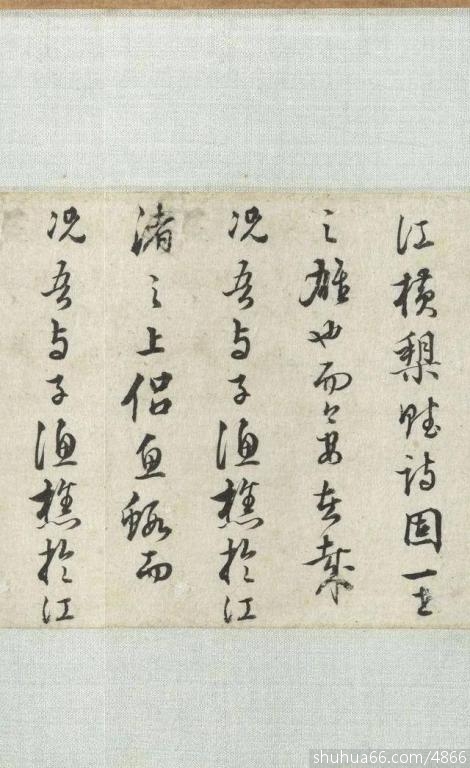 江横槊賦詩固一世
之雄也而今安在哉
况吾与子漁樵於江
渚之上侣魚鰕而
况吾与子漁樵於江
shuhua66.com/4866